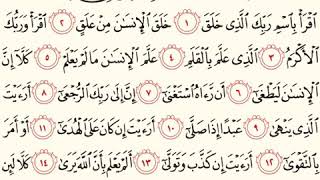 ٱقۡرَأۡ بِٱسۡمِ رَبِّكَ ٱلَّذِي خَلَقَ ١ خَلَقَ ٱلۡإِنسَٰنَ مِنۡ عَلَقٍ ٢ ٱقۡرَأۡ وَرَبُّكَ
ٱلۡأَكۡرَمُ ٣ ٱلَّذِي عَلَّمَ بِٱلۡقَلَمِ ٤ عَلَّمَ ٱلۡإِنسَٰنَ مَا لَمۡ يَعۡلَمۡ ٥ كَلَّآ إِنَّ
ٱلۡإِنسَٰنَ لَيَطۡغَىٰٓ ٦ أَن رَّءَاهُ ٱسۡتَغۡنَىٰٓ ٧ إِنَّ إِلَىٰ رَبِّكَ ٱلرُّجۡعَىٰٓ ٨ أَرَءَيۡتَ
ٱلَّذِي يَنۡهَىٰ ٩ عَبۡدًا إِذَا صَلَّىٰٓ ١٠ أَرَءَيۡتَ إِن كَانَ عَلَى ٱلۡهُدَىٰٓ ١١ أَوۡ أَمَرَ
بِٱلتَّقۡوَىٰٓ ١٢ أَرَءَيۡتَ إِن كَذَّبَ وَتَوَلَّىٰٓ ١٣ أَلَمۡ يَعۡلَم بِأَنَّ ٱللَّهَ يَرَىٰ ١٤ كَلَّا لَئِن